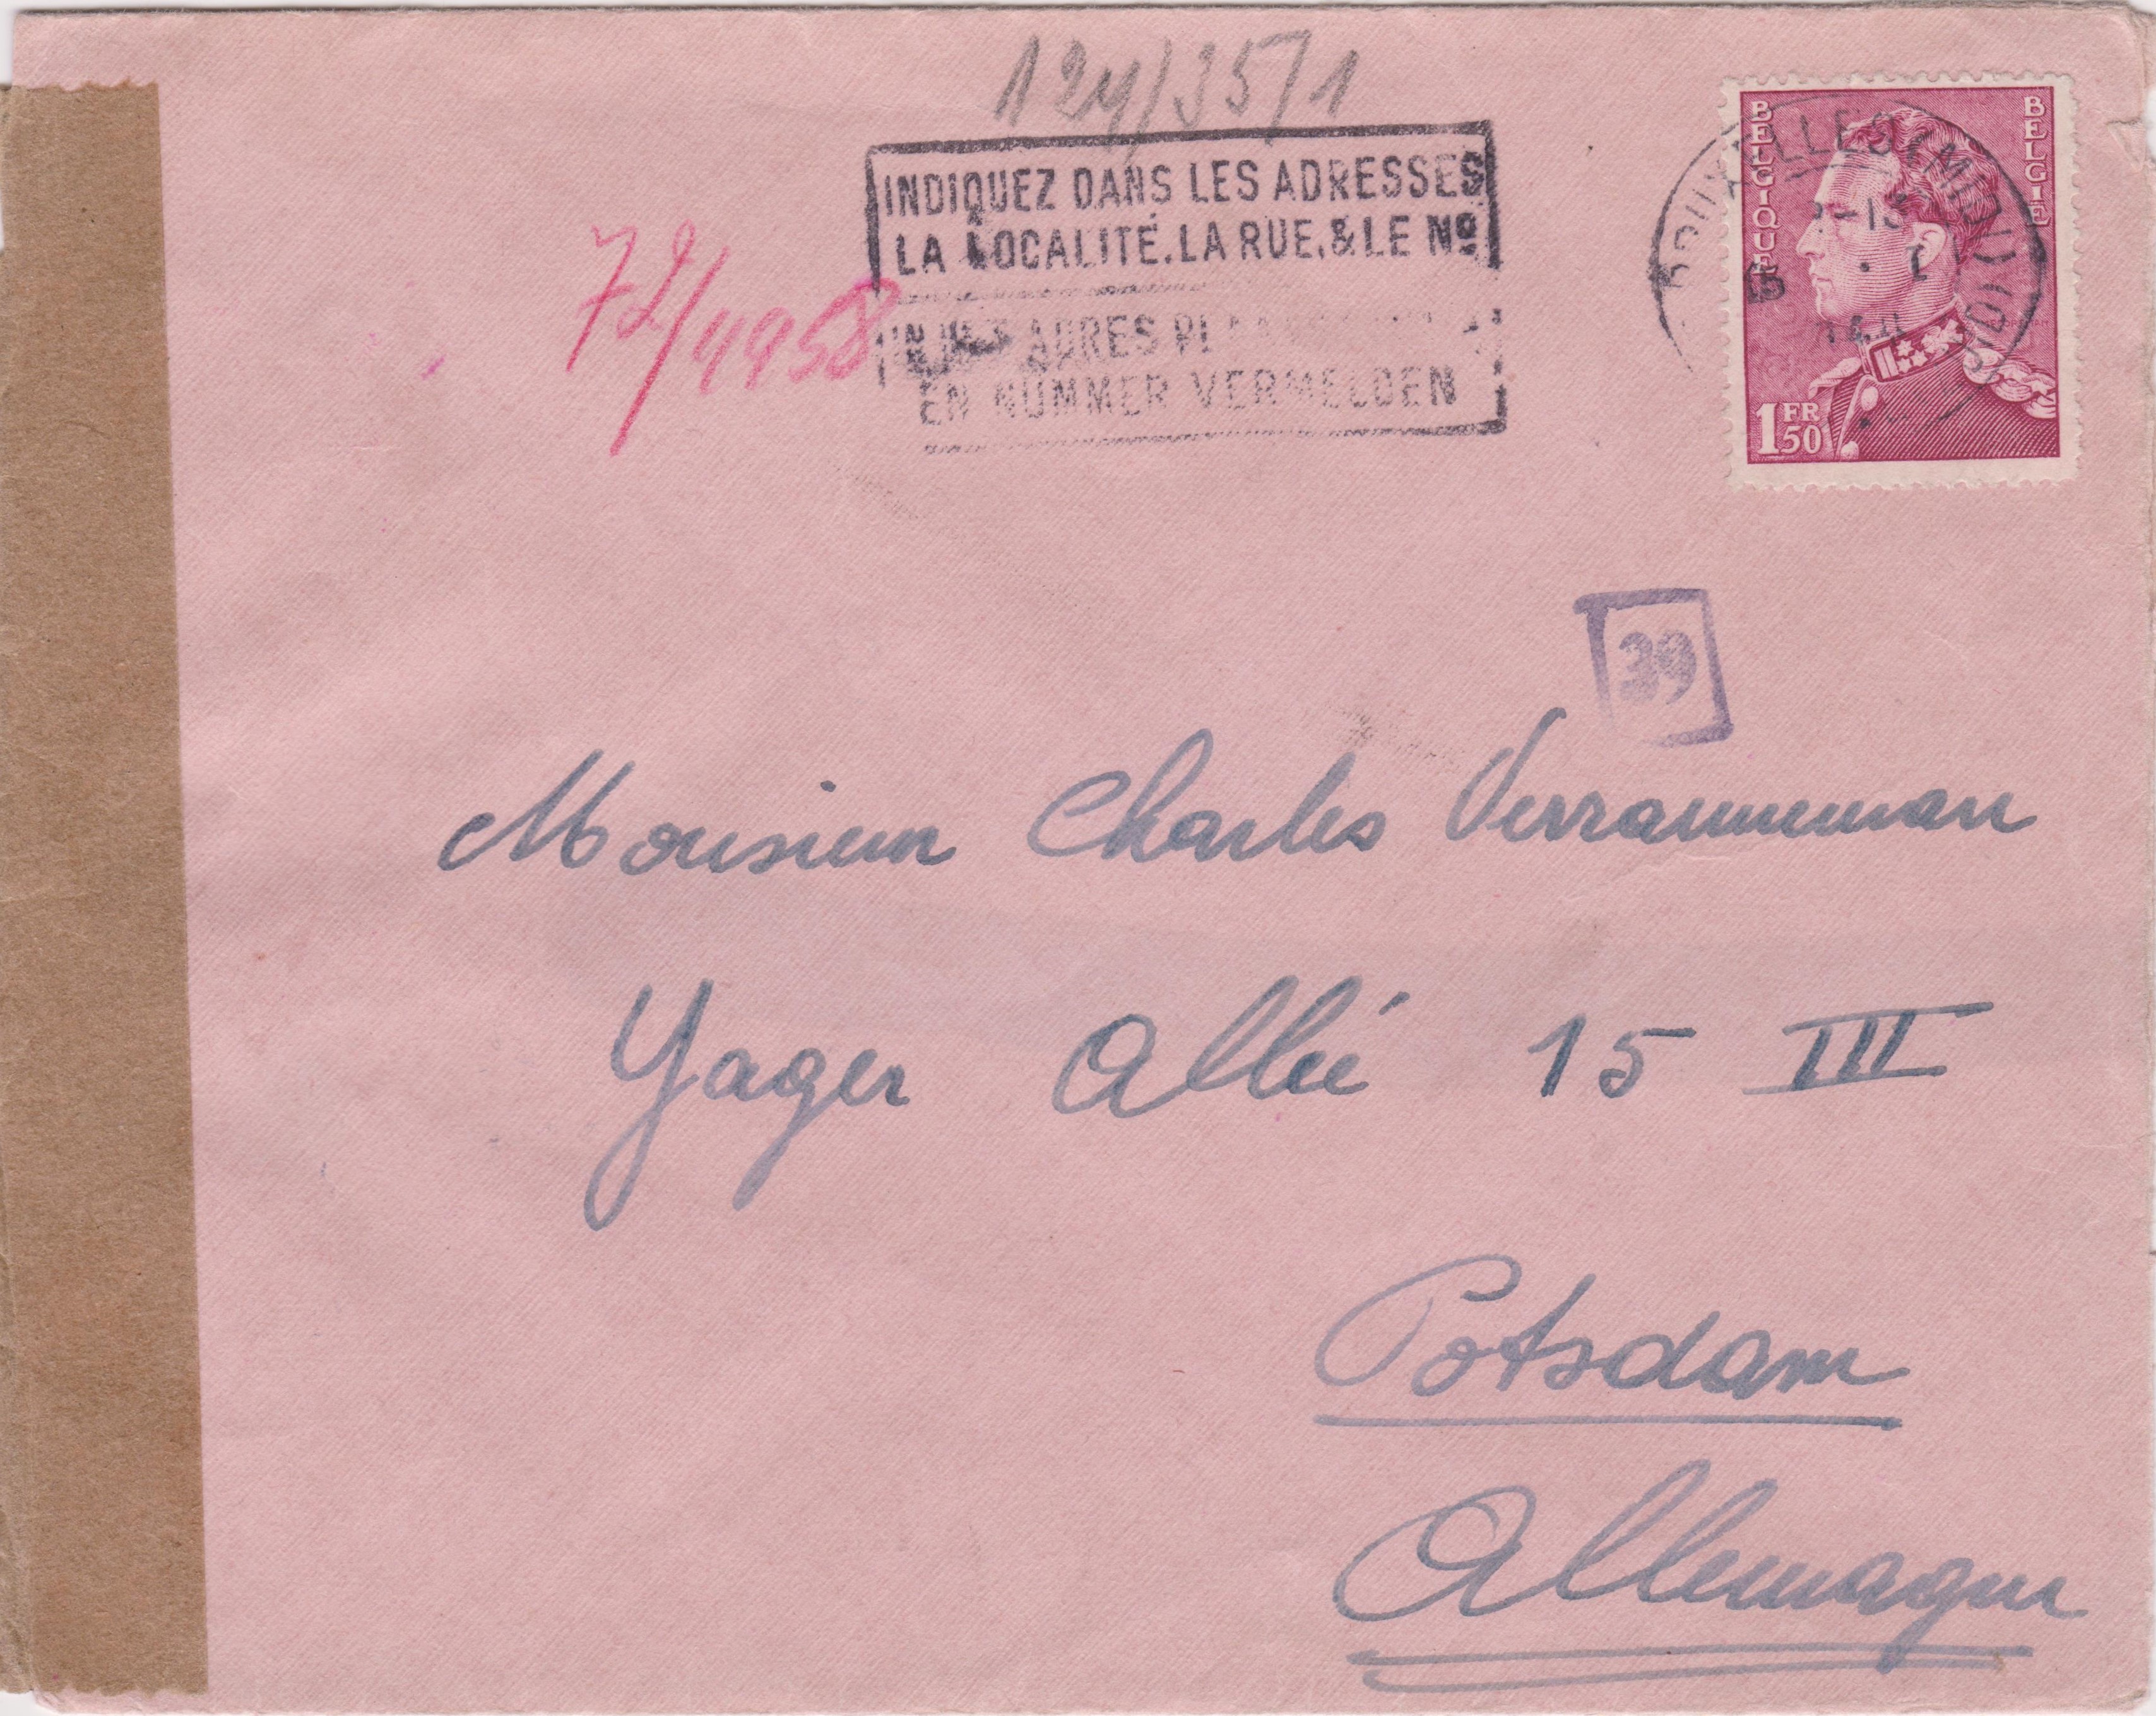 124/35/1
INDIQUEZ DANS LES ADRESSES
LA LOCALITÉ, LA RUE, & LE Nº
ADRES
EN NUMMER VERMELDEN
72/4958
BELGIQUE
BELGIË
BRUXELLES (MIDI)
1 FR 50
39
Monsieur Charles Verranneman
Yager Allée 15 III
Potsdam
Allemagne